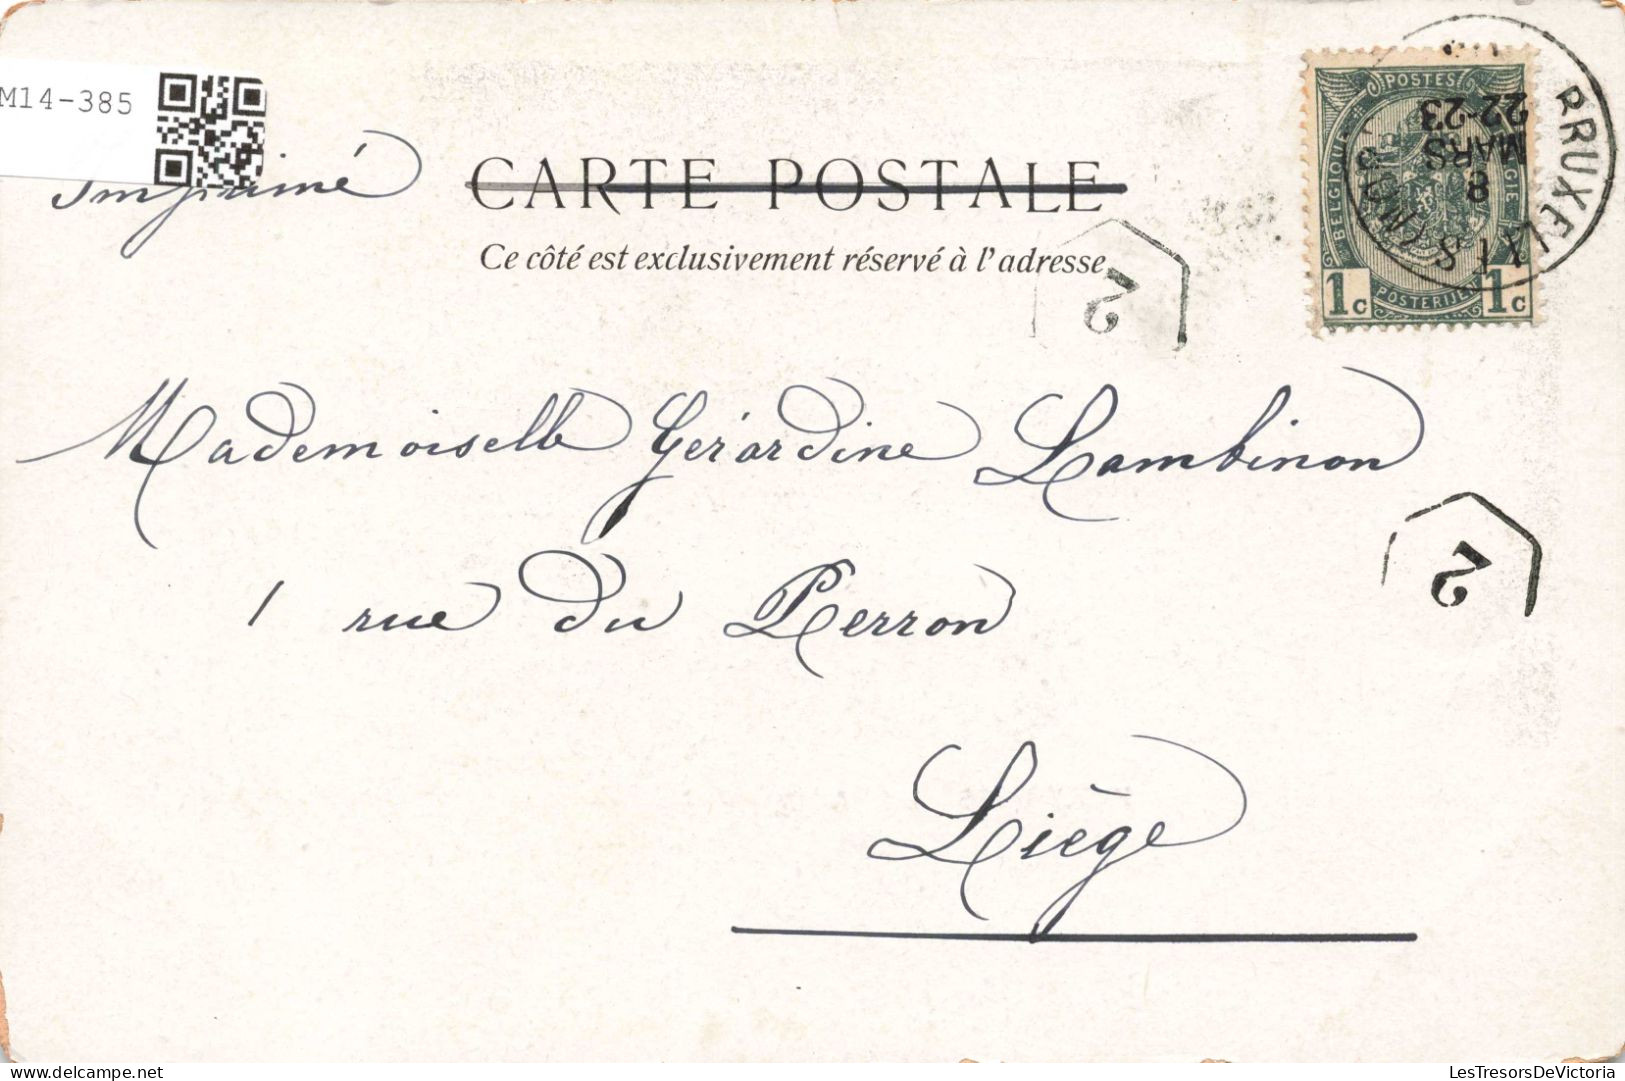 M14-385
Imprimé
CARTE POSTALE
Ce côté est exclusivement réservé à l'adresse
POSTES
BELGIQUE
1c POSTERIJEN 1c
8
MARS
22-23
2
Mademoiselle Gérardine Lambinon
2
1 rue du Perron
Liège
LesTresorsDeVictoria